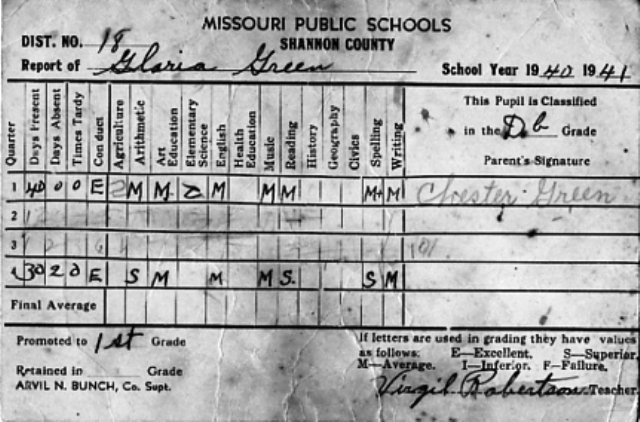 MISSOURI PUBLIC SCHOOLS
DIST. NO. 18 SHANNON COUNTY
Report of Gloria Green School Year 1940 1941
Quarter Days Present Days Absent Times Tardy Conduct Agriculture Arithmetic Art Education Elementary Science English Health Education Music Reading History Geography Civics Spelling Writing
This Pupil is Classified
in the D, b Grade
Parent's Signature
1 40 0 0 E M M M M M M+ M Chester Green
2
3
4 30 2 0 E S M M M S. S M
Final Average
Promoted to 1st Grade
If letters are used in grading they have values
as follows: E—Excellent. S—Superior.
M—Average. I—Inferior. F—Failure.
Retained in Grade
ARVIL N. BUNCH, Co. Supt.
Virgil Robertson Teacher.